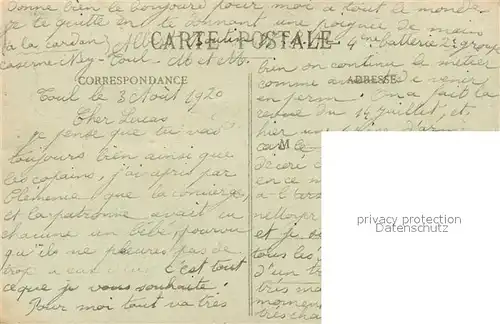 Donne bien le bonjour pour moi à tout le monde
je te quitte en te donnant une poignée de mains
CARTE POSTALE
4e batterie 2e groupe
caserne Ney - Toul. M et M.
CORRESPONDANCE
ADRESSE
Toul le 3 Août 1920
Cher Lucas
je pense que tu vas
toujours bien ainsi que
les copains, j'ai appris par
Clémence que la concierge,
et la patronne avait eu
chacune un bébé, pourvu
qu'ils ne pleures pas de
trop à eux c'est tout
ce que je vous souhaite.
Pour moi tout va très
bien on continue le métier
comme avant de venir
en perm. On a fait la
revue du 14 juillet, et
hier
décoré
en ce m
à l'
et je
tous les
d'un
moment
très cha
privacy protection
Datenschutz